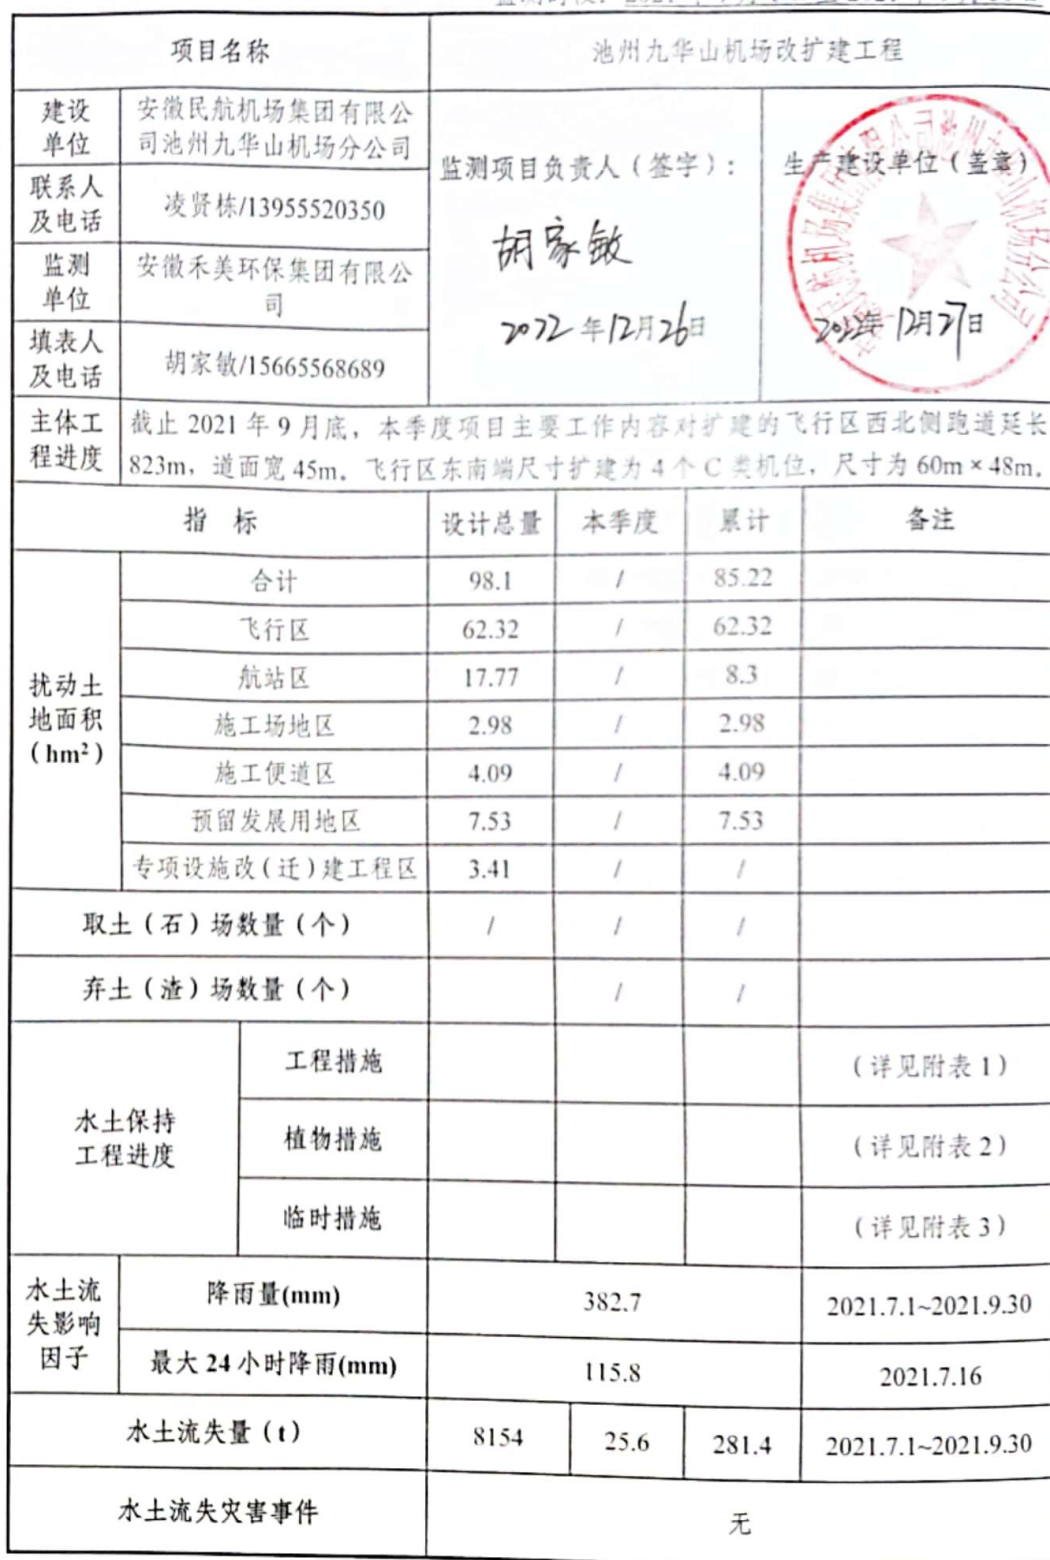 项目名称 池州九华山机场改扩建工程
建设单位 安徽民航机场集团有限公司池州九华山机场分公司
监测项目负责人（签字）： 生产建设单位（盖章）
联系人及电话 凌贤栋/13955520350
胡家敏
监测单位 安徽禾美环保集团有限公司
2022年12月26日 2022年12月27日
填表人及电话 胡家敏/15665568689
主体工程进度 截止 2021 年 9 月底，本季度项目主要工作内容对扩建的飞行区西北侧跑道延长
823m，道面宽 45m。飞行区东南端尺寸扩建为 4 个 C 类机位，尺寸为 60m×48m。
指 标 设计总量 本季度 累计 备注
扰动土地面积（hm²）
合计 98.1 / 85.22
飞行区 62.32 / 62.32
航站区 17.77 / 8.3
施工场地区 2.98 / 2.98
施工便道区 4.09 / 4.09
预留发展用地区 7.53 / 7.53
专项设施改（迁）建工程区 3.41 / /
取土（石）场数量（个） / / /
弃土（渣）场数量（个） / /
水土保持工程进度
工程措施 （详见附表 1）
植物措施 （详见附表 2）
临时措施 （详见附表 3）
水土流失影响因子
降雨量(mm) 382.7 2021.7.1~2021.9.30
最大 24 小时降雨(mm) 115.8 2021.7.16
水土流失量（t） 8154 25.6 281.4 2021.7.1~2021.9.30
水土流失灾害事件 无